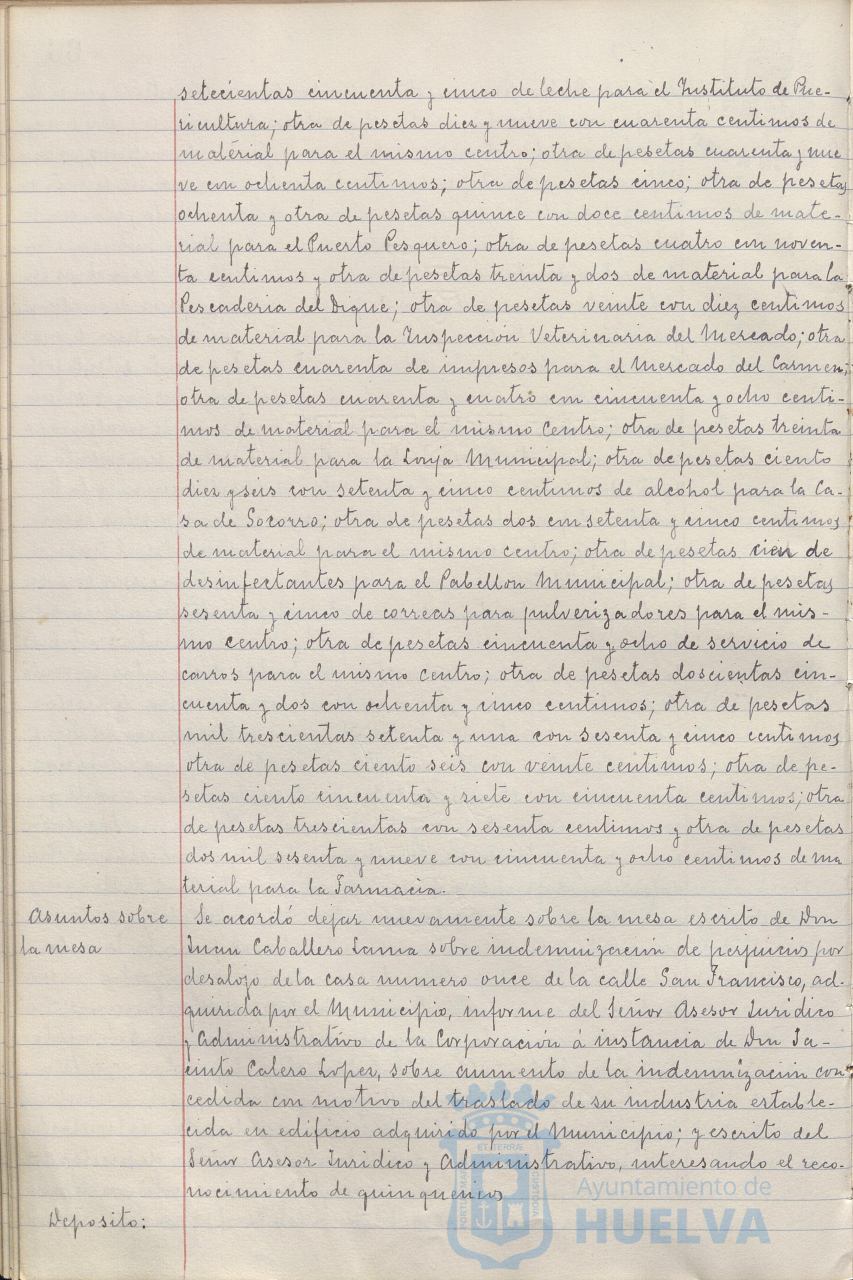 setecientas cincuenta y cinco de leche para el Instituto de Pue-
ricultura; otra de pesetas diez y nueve con cuarenta centimos de
matérial para el mismo centro; otra de pesetas cuarenta y nue
ve con ochenta centimos; otra de pesetas cinco; otra de pesetas
ochenta y otra de pesetas quince con doce centimos de mate-
rial para el Puerto Pesquero; otra de pesetas cuatro con noven-
ta centimos y otra de pesetas treinta y dos de material para la
Pescaderia del Dique; otra de pesetas veinte con diez centimos
de material para la Inspección Veterinaria del Mercado; otra
de pesetas cuarenta de impresos para el Mercado del Carmen;
otra de pesetas cuarenta y cuatro con cincuenta y ocho centi-
mos de material para el mismo Centro; otra de pesetas treinta
de material para la Lonja Municipal; otra de pesetas ciento
diez y seis con setenta y cinco centimos de alcohol para la Ca-
sa de Socorro; otra de pesetas dos con setenta y cinco centimos
de material para el mismo centro; otra de pesetas cien de
desinfectantes para el Pabellon Municipal; otra de pesetas
sesenta y cinco de correas para pulverizadores para el mis-
mo centro; otra de pesetas cincuenta y ocho de servicio de
carros para el mismo centro; otra de pesetas doscientas cin-
cuenta y dos con ochenta y cinco centimos; otra de pesetas
mil trescientas setenta y una con sesenta y cinco centimos
otra de pesetas ciento seis con veinte centimos; otra de pe-
setas ciento cincuenta y siete con cincuenta centimos; otra
de pesetas trescientas con sesenta centimos y otra de pesetas
dos mil sesenta y nueve con cincuenta y ocho centimos de ma
terial para la Farmacia.
Asuntos sobre
la mesa
Se acordó dejar nuevamente sobre la mesa escrito de Don
Juan Caballero Lama sobre indemnización de perjuicios por
desalojo de la casa numero once de la calle San Francisco, ad-
quirida por el Municipio, informe del Señor Asesor Juridico
y Administrativo de la Corporación á instancia de Don Ja-
cinto Calero Lopez, sobre aumento de la indemnización con
cedida con motivo del traslado de su industria estable-
cida en edificio adquirido por el Municipio; y escrito del
Señor Asesor Juridico y Administrativo, interesando el reco-
nocimiento de quinquenios
Deposito:
Ayuntamiento de
HUELVA